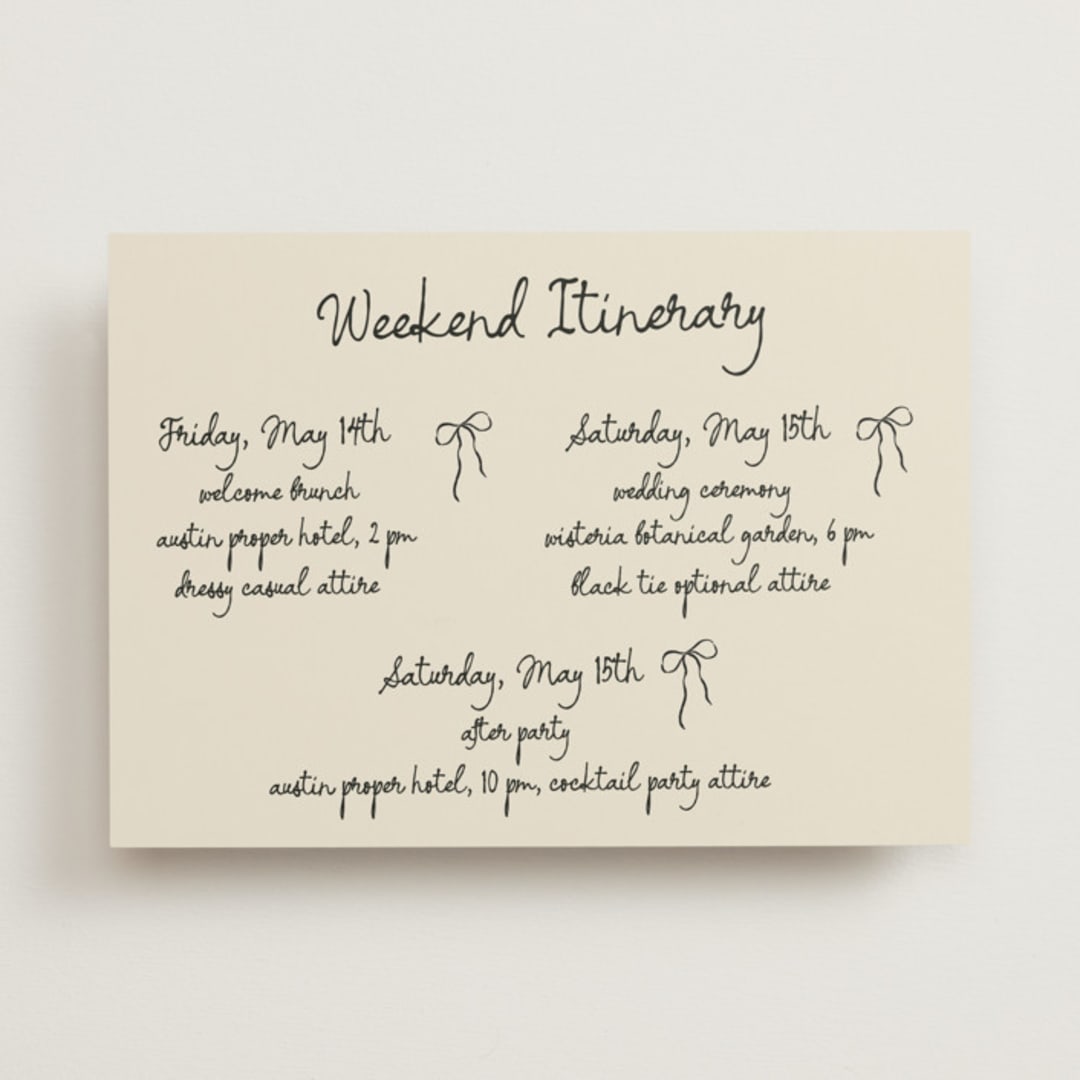 Weekend Itinerary
Friday, May 14th
welcome brunch
austin proper hotel, 2 pm
dressy casual attire
Saturday, May 15th
wedding ceremony
wisteria botanical garden, 6 pm
black tie optional attire
Saturday, May 15th
after party
austin proper hotel, 10 pm, cocktail party attire